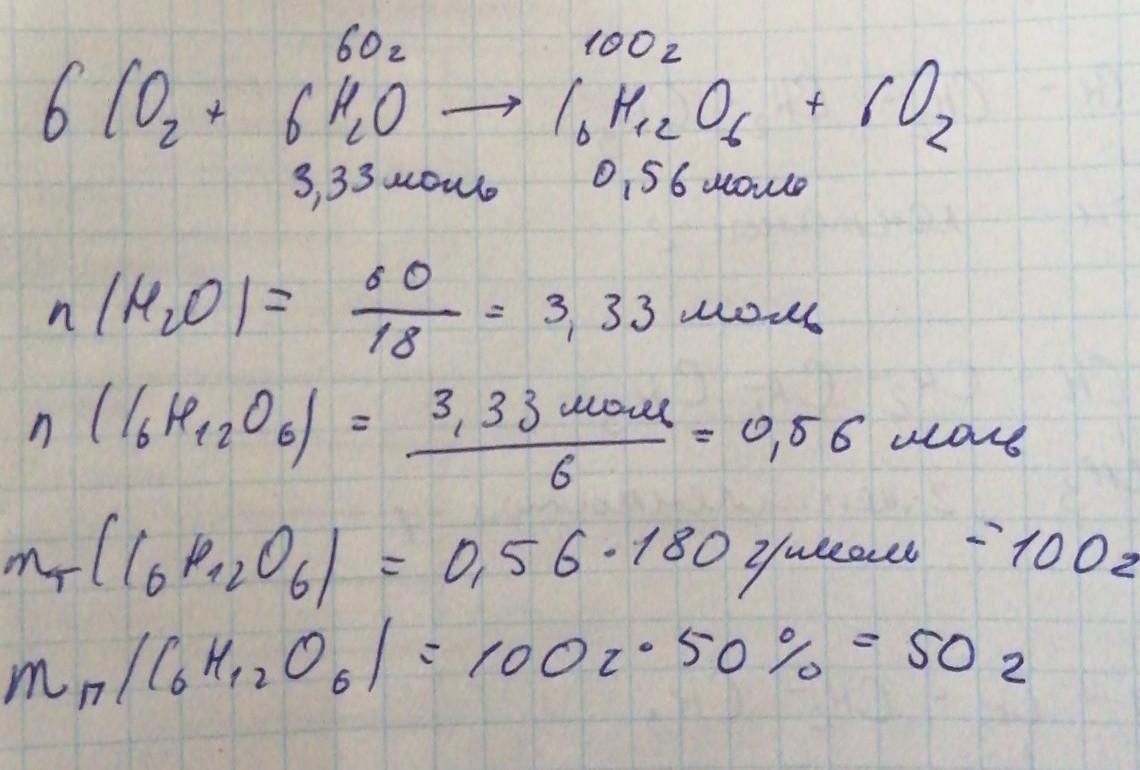 60г 100г
6 CO₂ + 6H₂O → C₆H₁₂O₆ + 6O₂
3,33 моль 0,56 моль
n(H₂O) = 60/18 = 3,33 моль
n(C₆H₁₂O₆) = 3,33 моль/6 = 0,56 моль
mт(C₆H₁₂O₆) = 0,56·180 г/моль = 100г
mп(C₆H₁₂O₆) = 100г·50% = 50г